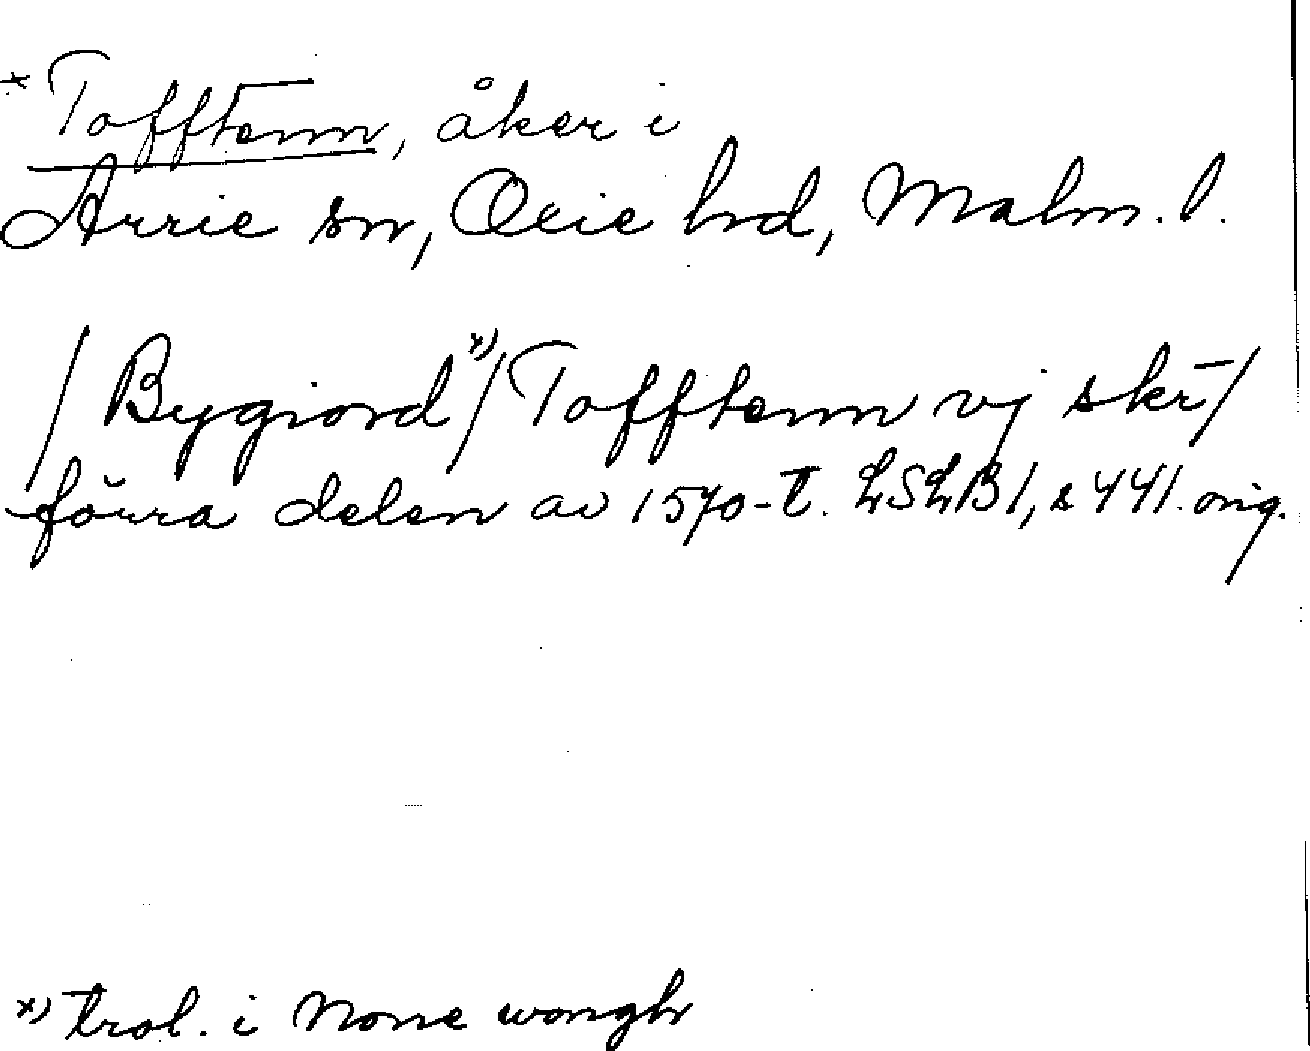 * Tofftenn, åker i
Arrie sn, Oxie hd, Malm. l.
/ Bygiord x) / Tofftenn vj skr̄ /
förra delen av 1570-t. LSLB 1, s 441. orig.
x) trol. i None wongh